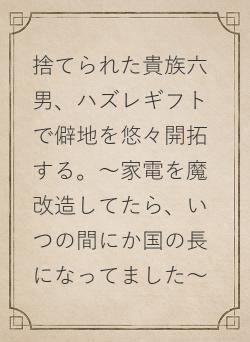 捨てられた貴族六
男、ハズレギフト
で僻地を悠々開拓
する。〜家電を魔
改造してたら、い
つの間にか国の長
になってました〜